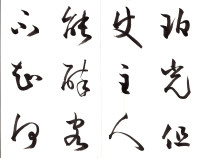 珀光但
使主人
能醉客
不知何